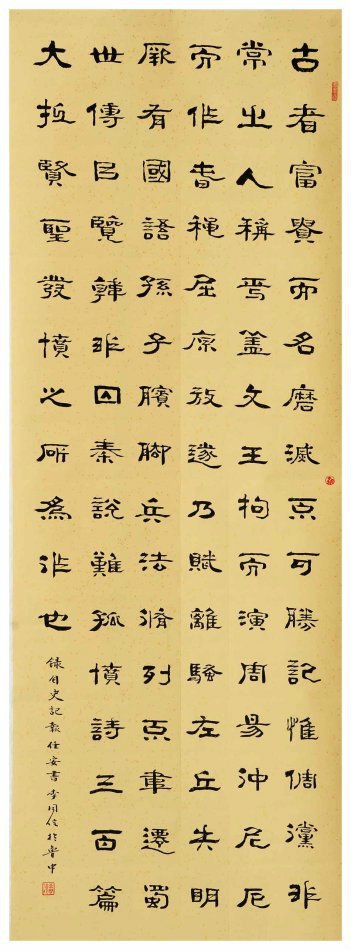 古者富貴而名磨滅不可勝記惟倜儻非
常之人稱焉蓋文王拘而演周易仲尼厄
而作春秋屈原放逐乃賦離騷左丘失明
厥有國語孫子臏腳兵法脩列不韋遷蜀
世傳呂覽韓非囚秦說難孤憤詩三百篇
大抵賢聖發憤之所為作也
錄自史記報任安書李同信於魯中